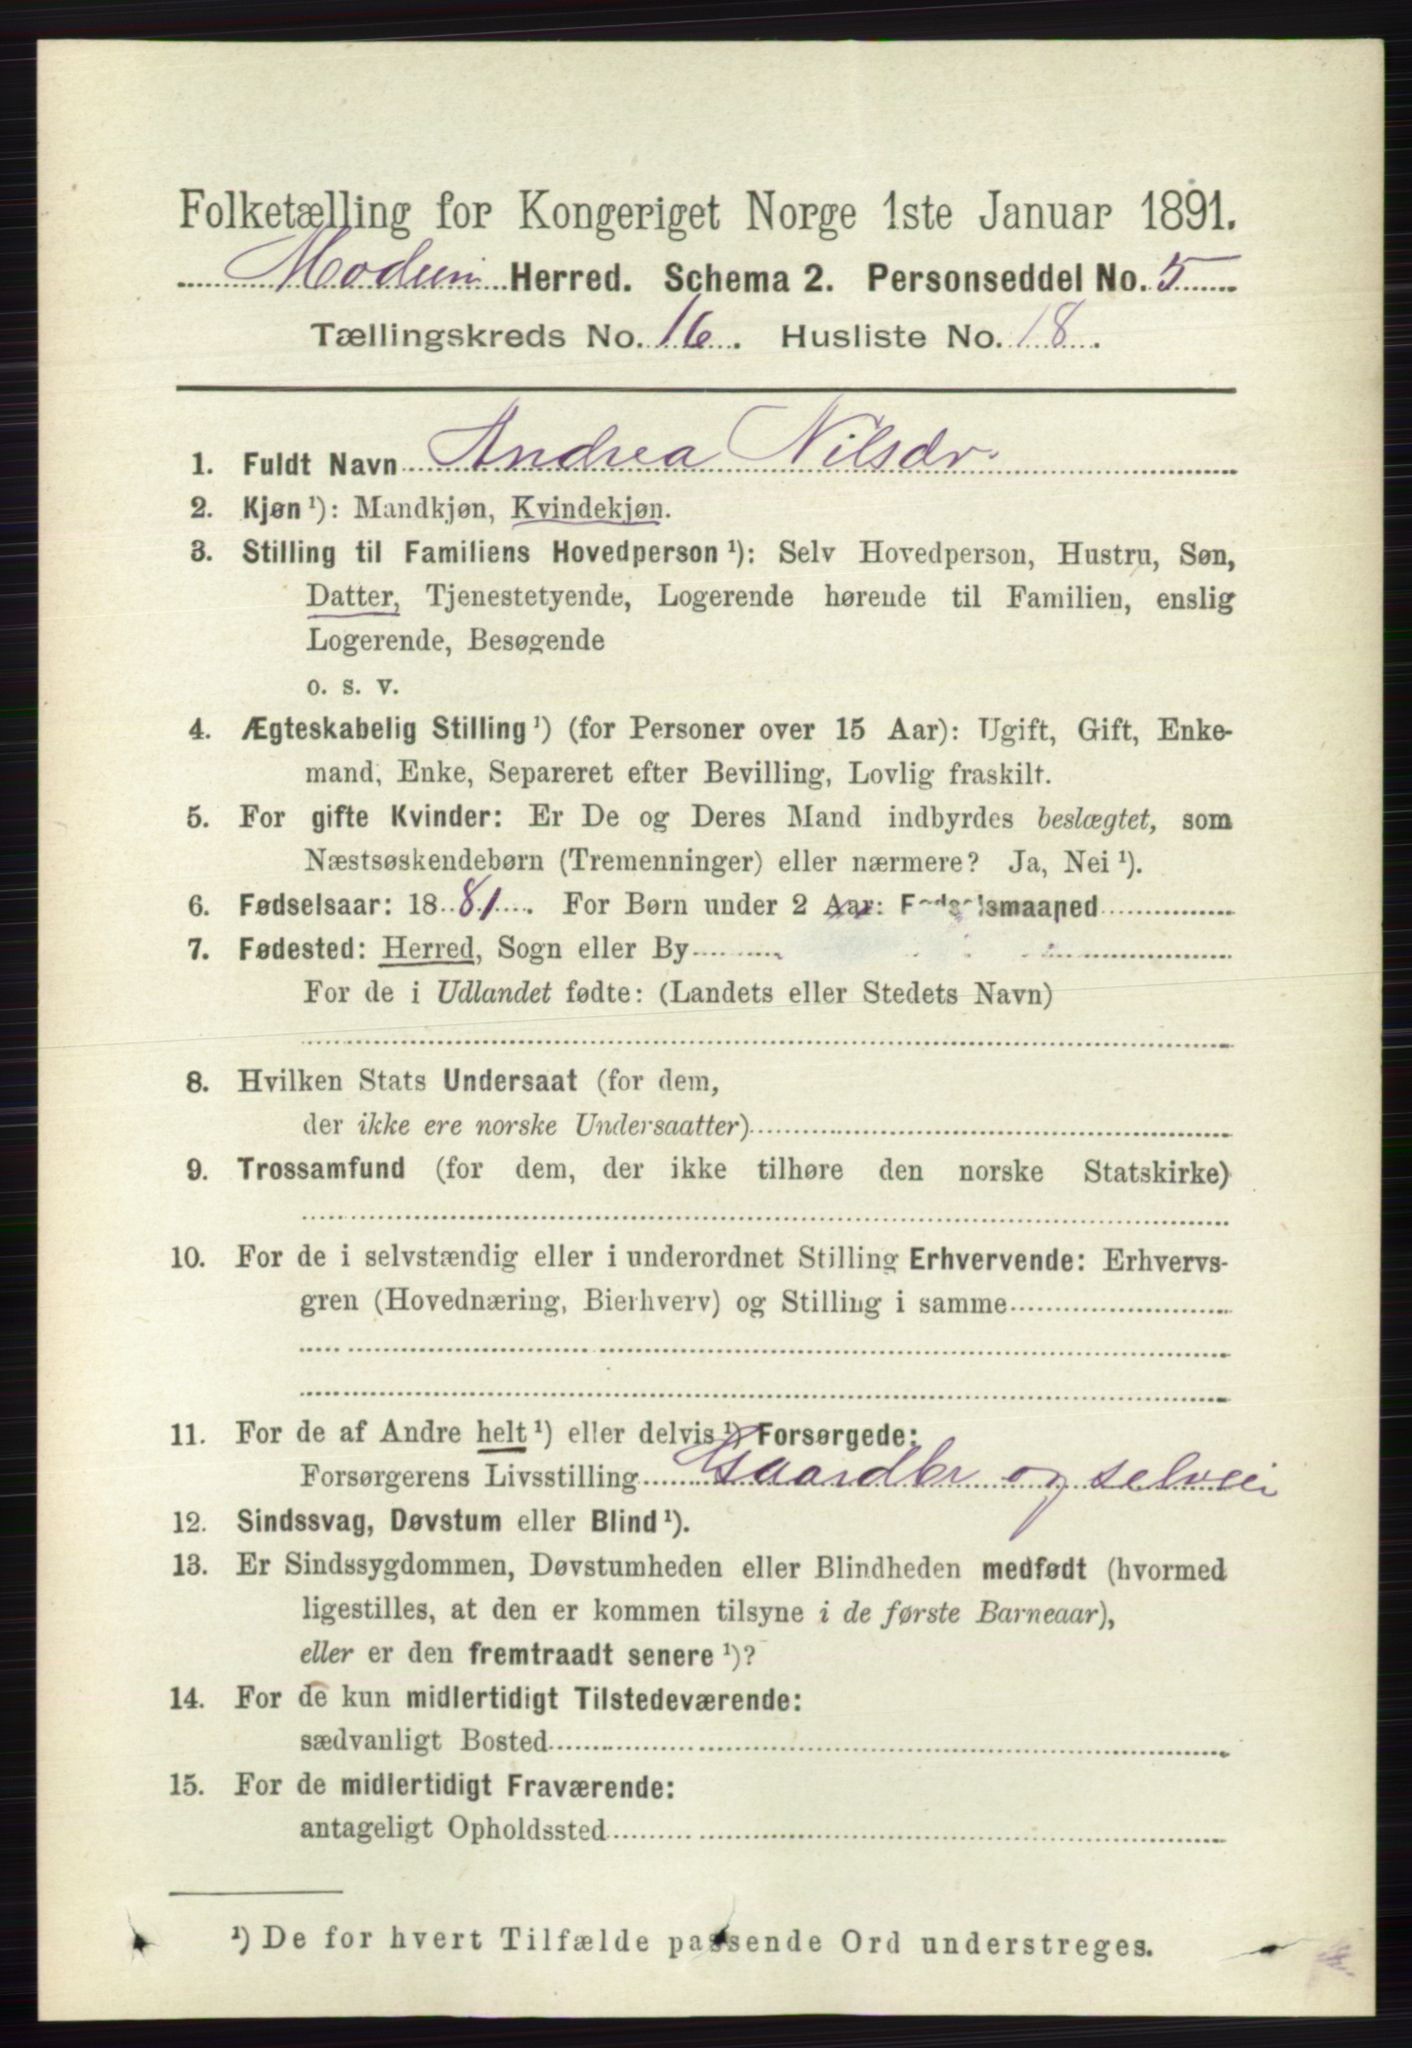 Folketælling for Kongeriget Norge 1ste Januar 1891.
Modum Herred. Schema 2. Personseddel No. 5
Tællingskreds No. 16. Husliste No. 18.
1. Fuldt Navn Andrea Nilsdr.
2. Kjøn ¹): Mandkjøn, Kvindekjøn.
3. Stilling til Familiens Hovedperson ¹): Selv Hovedperson, Hustru, Søn,
Datter, Tjenestetyende, Logerende hørende til Familien, enslig
Logerende, Besøgende
o. s. v.
4. Ægteskabelig Stilling ¹) (for Personer over 15 Aar): Ugift, Gift, Enke-
mand, Enke, Separeret efter Bevilling, Lovlig fraskilt.
5. For gifte Kvinder: Er De og Deres Mand indbyrdes beslægtet, som
Næstsøskendebørn (Tremenninger) eller nærmere? Ja, Nei ¹).
6. Fødselsaar: 1881. For Børn under 2 Aar: Fødselsmaaned
7. Fødested: Herred, Sogn eller By
For de i Udlandet fødte: (Landets eller Stedets Navn)
8. Hvilken Stats Undersaat (for dem,
der ikke ere norske Undersaatter)
9. Trossamfund (for dem, der ikke tilhøre den norske Statskirke)
10. For de i selvstændig eller i underordnet Stilling Erhvervende: Erhvervs-
gren (Hovednæring, Bierhverv) og Stilling i samme
11. For de af Andre helt ¹) eller delvis ¹) Forsørgede:
Forsørgerens Livsstilling Gaardbr og selveier
12. Sindssvag, Døvstum eller Blind ¹).
13. Er Sindssygdommen, Døvstumheden eller Blindheden medfødt (hvormed
ligestilles, at den er kommen tilsyne i de første Barneaar),
eller er den fremtraadt senere ¹)?
14. For de kun midlertidigt Tilstedeværende:
sædvanligt Bosted
15. For de midlertidigt Fraværende:
antageligt Opholdssted
¹) De for hvert Tilfælde passende Ord understreges.